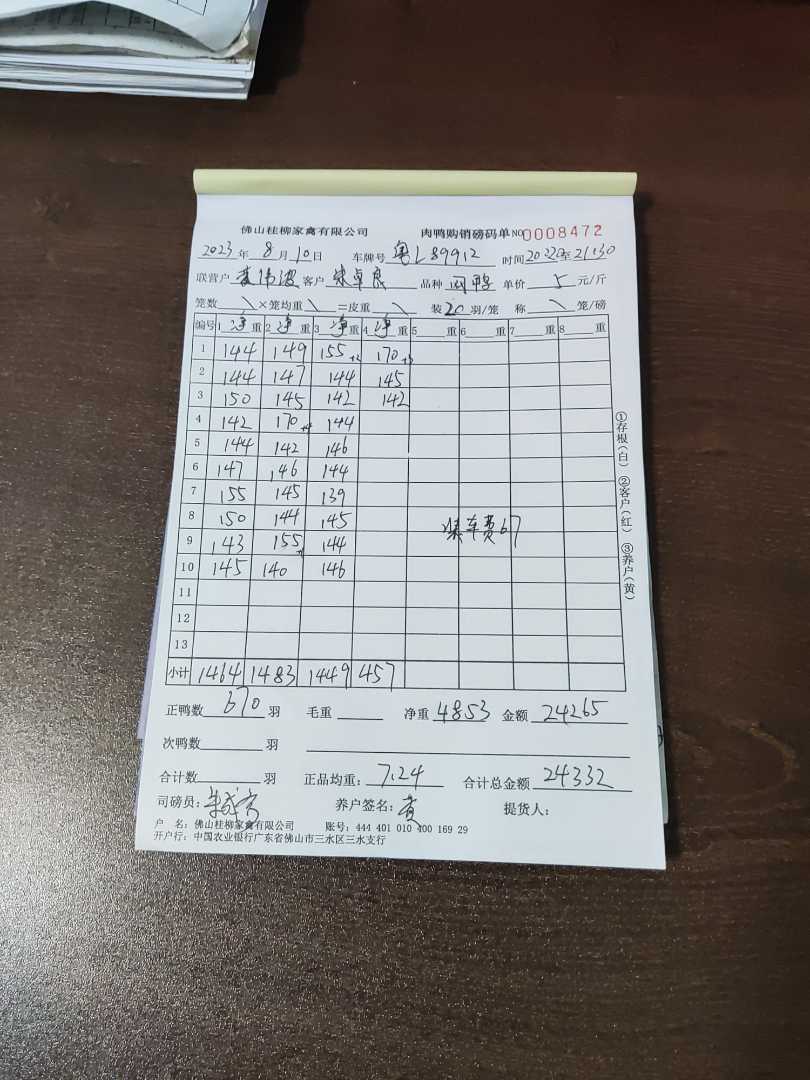 佛山桂柳家禽有限公司 肉鸭购销磅码单 NO 0008472
2023 年 8 月 10 日 车牌号 粤L89912 时间 20:20 至 21:30
联营户 客户 宋卓良 品种 肉鸭 单价 5 元/斤
笼数 \ ×笼均重 \ =皮重 \ 装 20 羽/笼 称 \ 笼/磅
编号 1 净 重 2 净 重 3 净 重 4 净 重 5 重 6 重 7 重 8 重
1 144 149 155+2 170+3
2 144 147 144 145
3 150 145 142 142
4 142 170+4 144
5 144 142 146
6 147 146 144
7 155 145 139
8 150 144 145
装车费67
9 143 155 144
10 145 140 146
11
12
13
小计 1464 1483 1449 457
①存根(白) ②客户(红) ③养户(黄)
正鸭数 670 羽 毛重 净重 4853 金额 24265
次鸭数 羽
合计数 羽 正品均重: 7.24 合计总金额 24332
司磅员: 养户签名: 提货人:
户 名: 佛山桂柳家禽有限公司 账号: 444 401 010 400 169 29
开户行: 中国农业银行广东省佛山市三水区三水支行